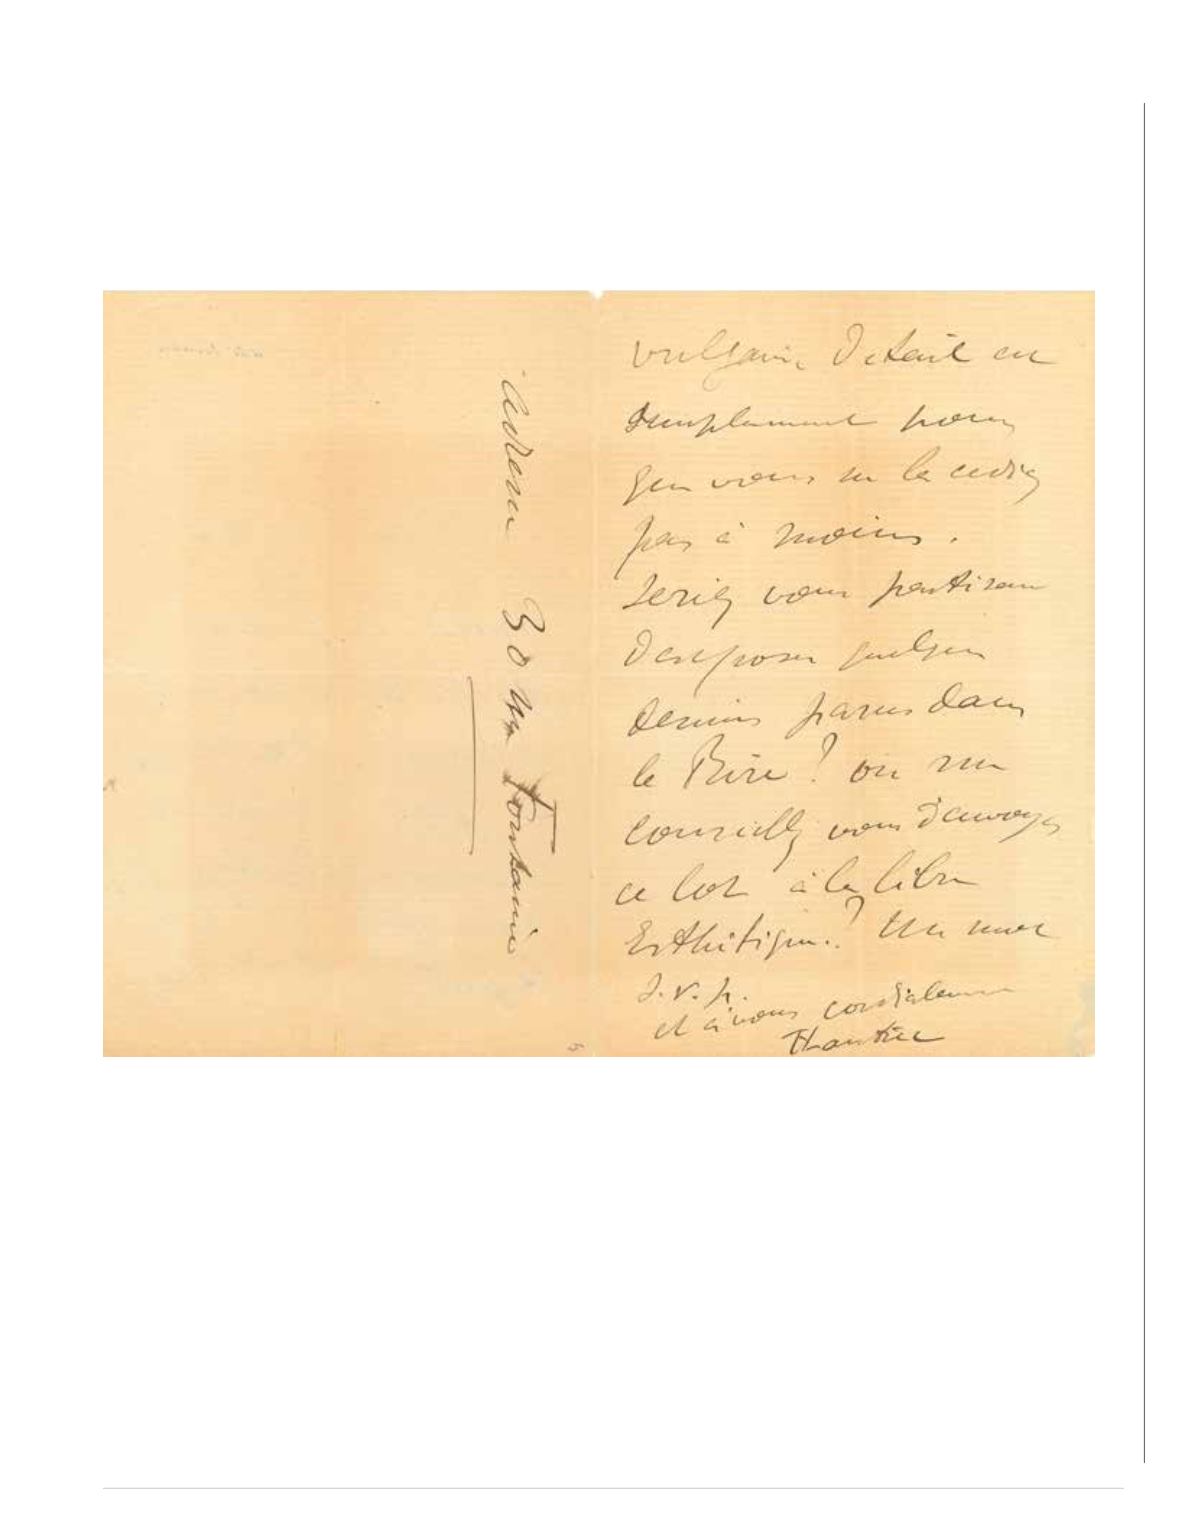 adresse 30 rue Fontaine
vulgaire détail est
simplement pour
que vous ne la cediez
pas à moins.
Seriez vous partisan
d'exposer quelques
dessins parus dans
le Rire ? ou me
conseillez vous d'envoyer
ce lot à la libre
Esthétique ? Un mot
S.V.P.
et à vous cordialement
HLautrec